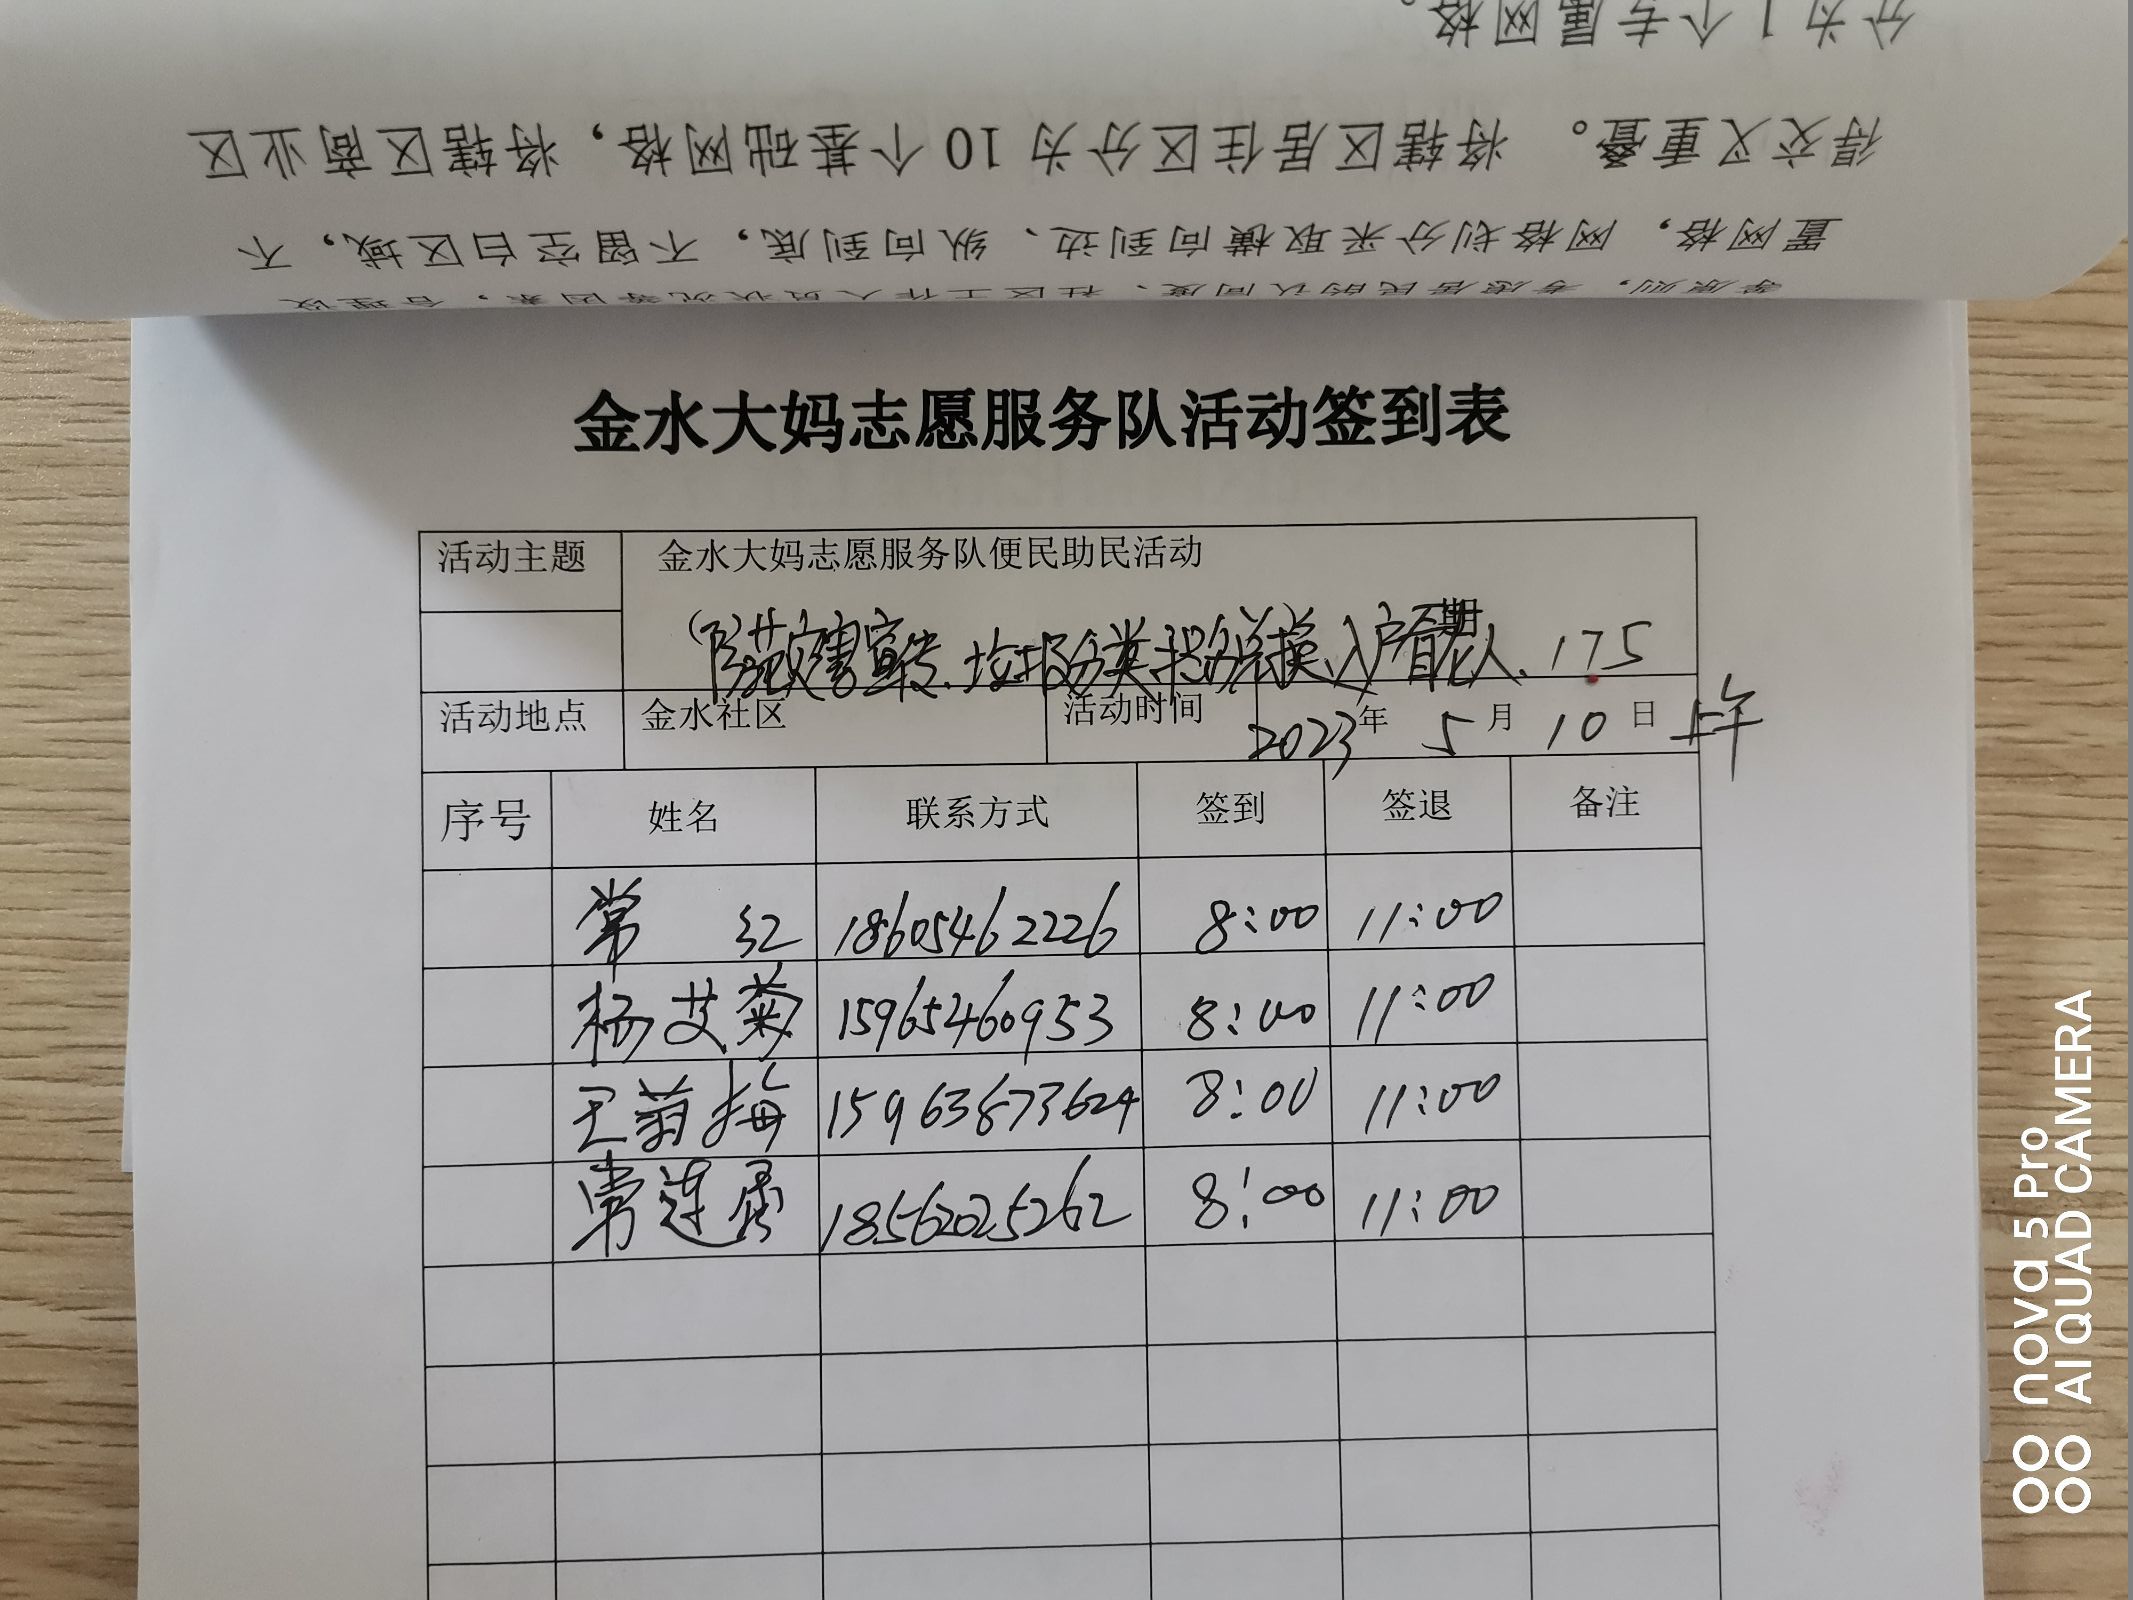 分为1个专属网格。
得交叉重叠。将辖区居住区分为10个基础网格，将辖区商业区
置网格，网格划分采取横向到边、纵向到底，不留空白区域，不
等原则，考虑居民的认同度、社区工作人员状况等因素，合理设
金水大妈志愿服务队活动签到表
活动主题 金水大妈志愿服务队便民助民活动
（防范灾害宣传、垃圾分类积分兑换入户看老人、175
期
活动地点 金水社区 活动时间 2023年5月10日上午
序号 姓名 联系方式 签到 签退 备注
常红 18605462226 8:00 11:00
杨艾菊 15965460953 8:00 11:00
王菊梅 15963873624 8:00 11:00
常莲 18562025262 8:00 11:00
nova 5 Pro
AI QUAD CAMERA